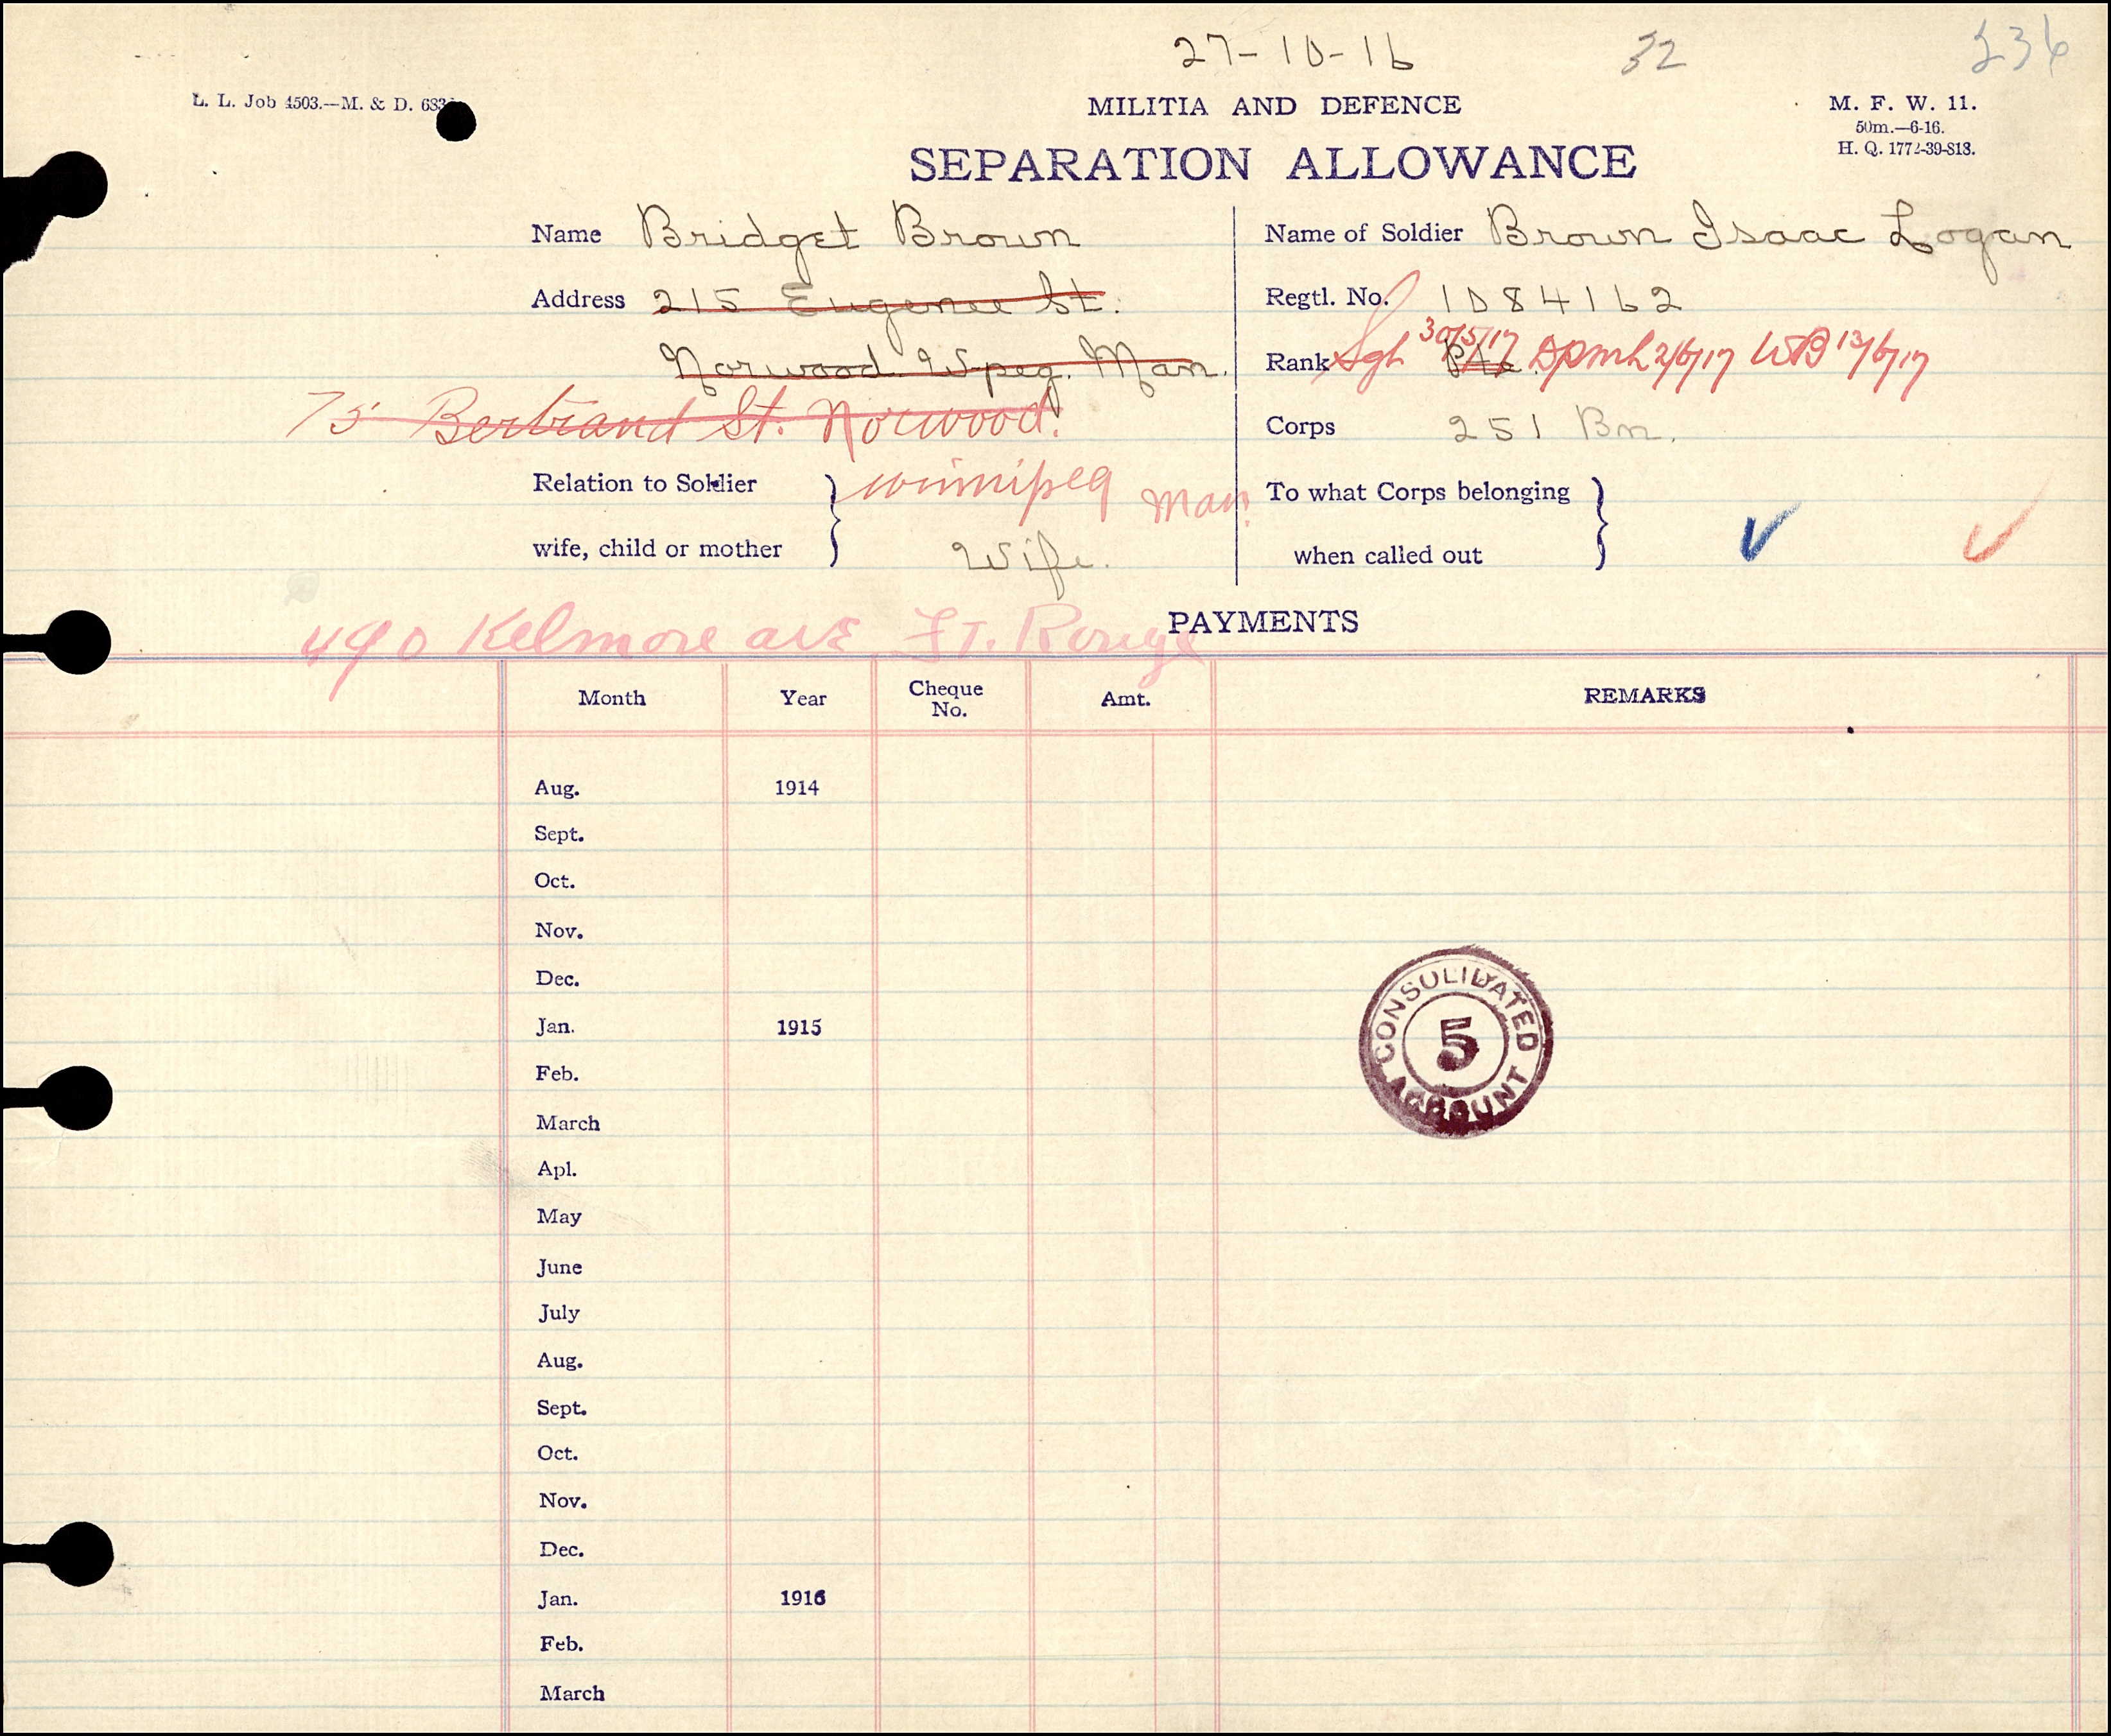 27-10-16 32 236
L. L. Job 4503.—M. & D. 683
MILITIA AND DEFENCE
M. F. W. 11.
50m.—6-16.
H. Q. 1772-39-818.
SEPARATION ALLOWANCE
Name Bridget Brown
Name of Soldier Brown Isaac Logan
Address 215 Eugenee St.
Regtl. No. 1084162
Norwood Wpeg. Man.
Rank Sgt 30/5/17 Pte. 2/6/17 WB 13/6/17
75 Bertrand St. Norwood.
Corps 251 Bn.
Relation to Soldier
wife, child or mother
winnipeg Man.
Wife.
To what Corps belonging
when called out
490 Kelmore ave Ft. Rouge
PAYMENTS
Month Year Cheque No. Amt. REMARKS
Aug. 1914
Sept.
Oct.
Nov.
Dec.
Jan. 1915
Feb.
March
Apl.
May
June
July
Aug.
Sept.
Oct.
Nov.
Dec.
Jan. 1916
Feb.
March
CONSOLIDATED
5
ACCOUNT